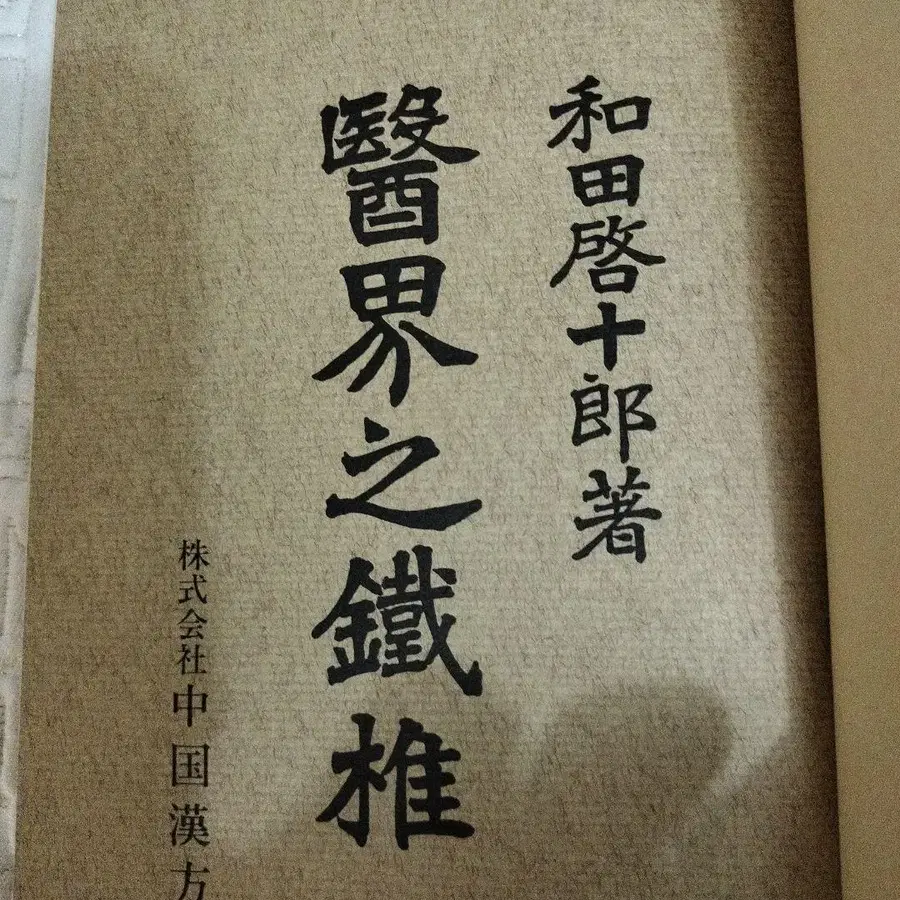 和田啓十郎著
醫界之鐵椎
株式会社中国漢方